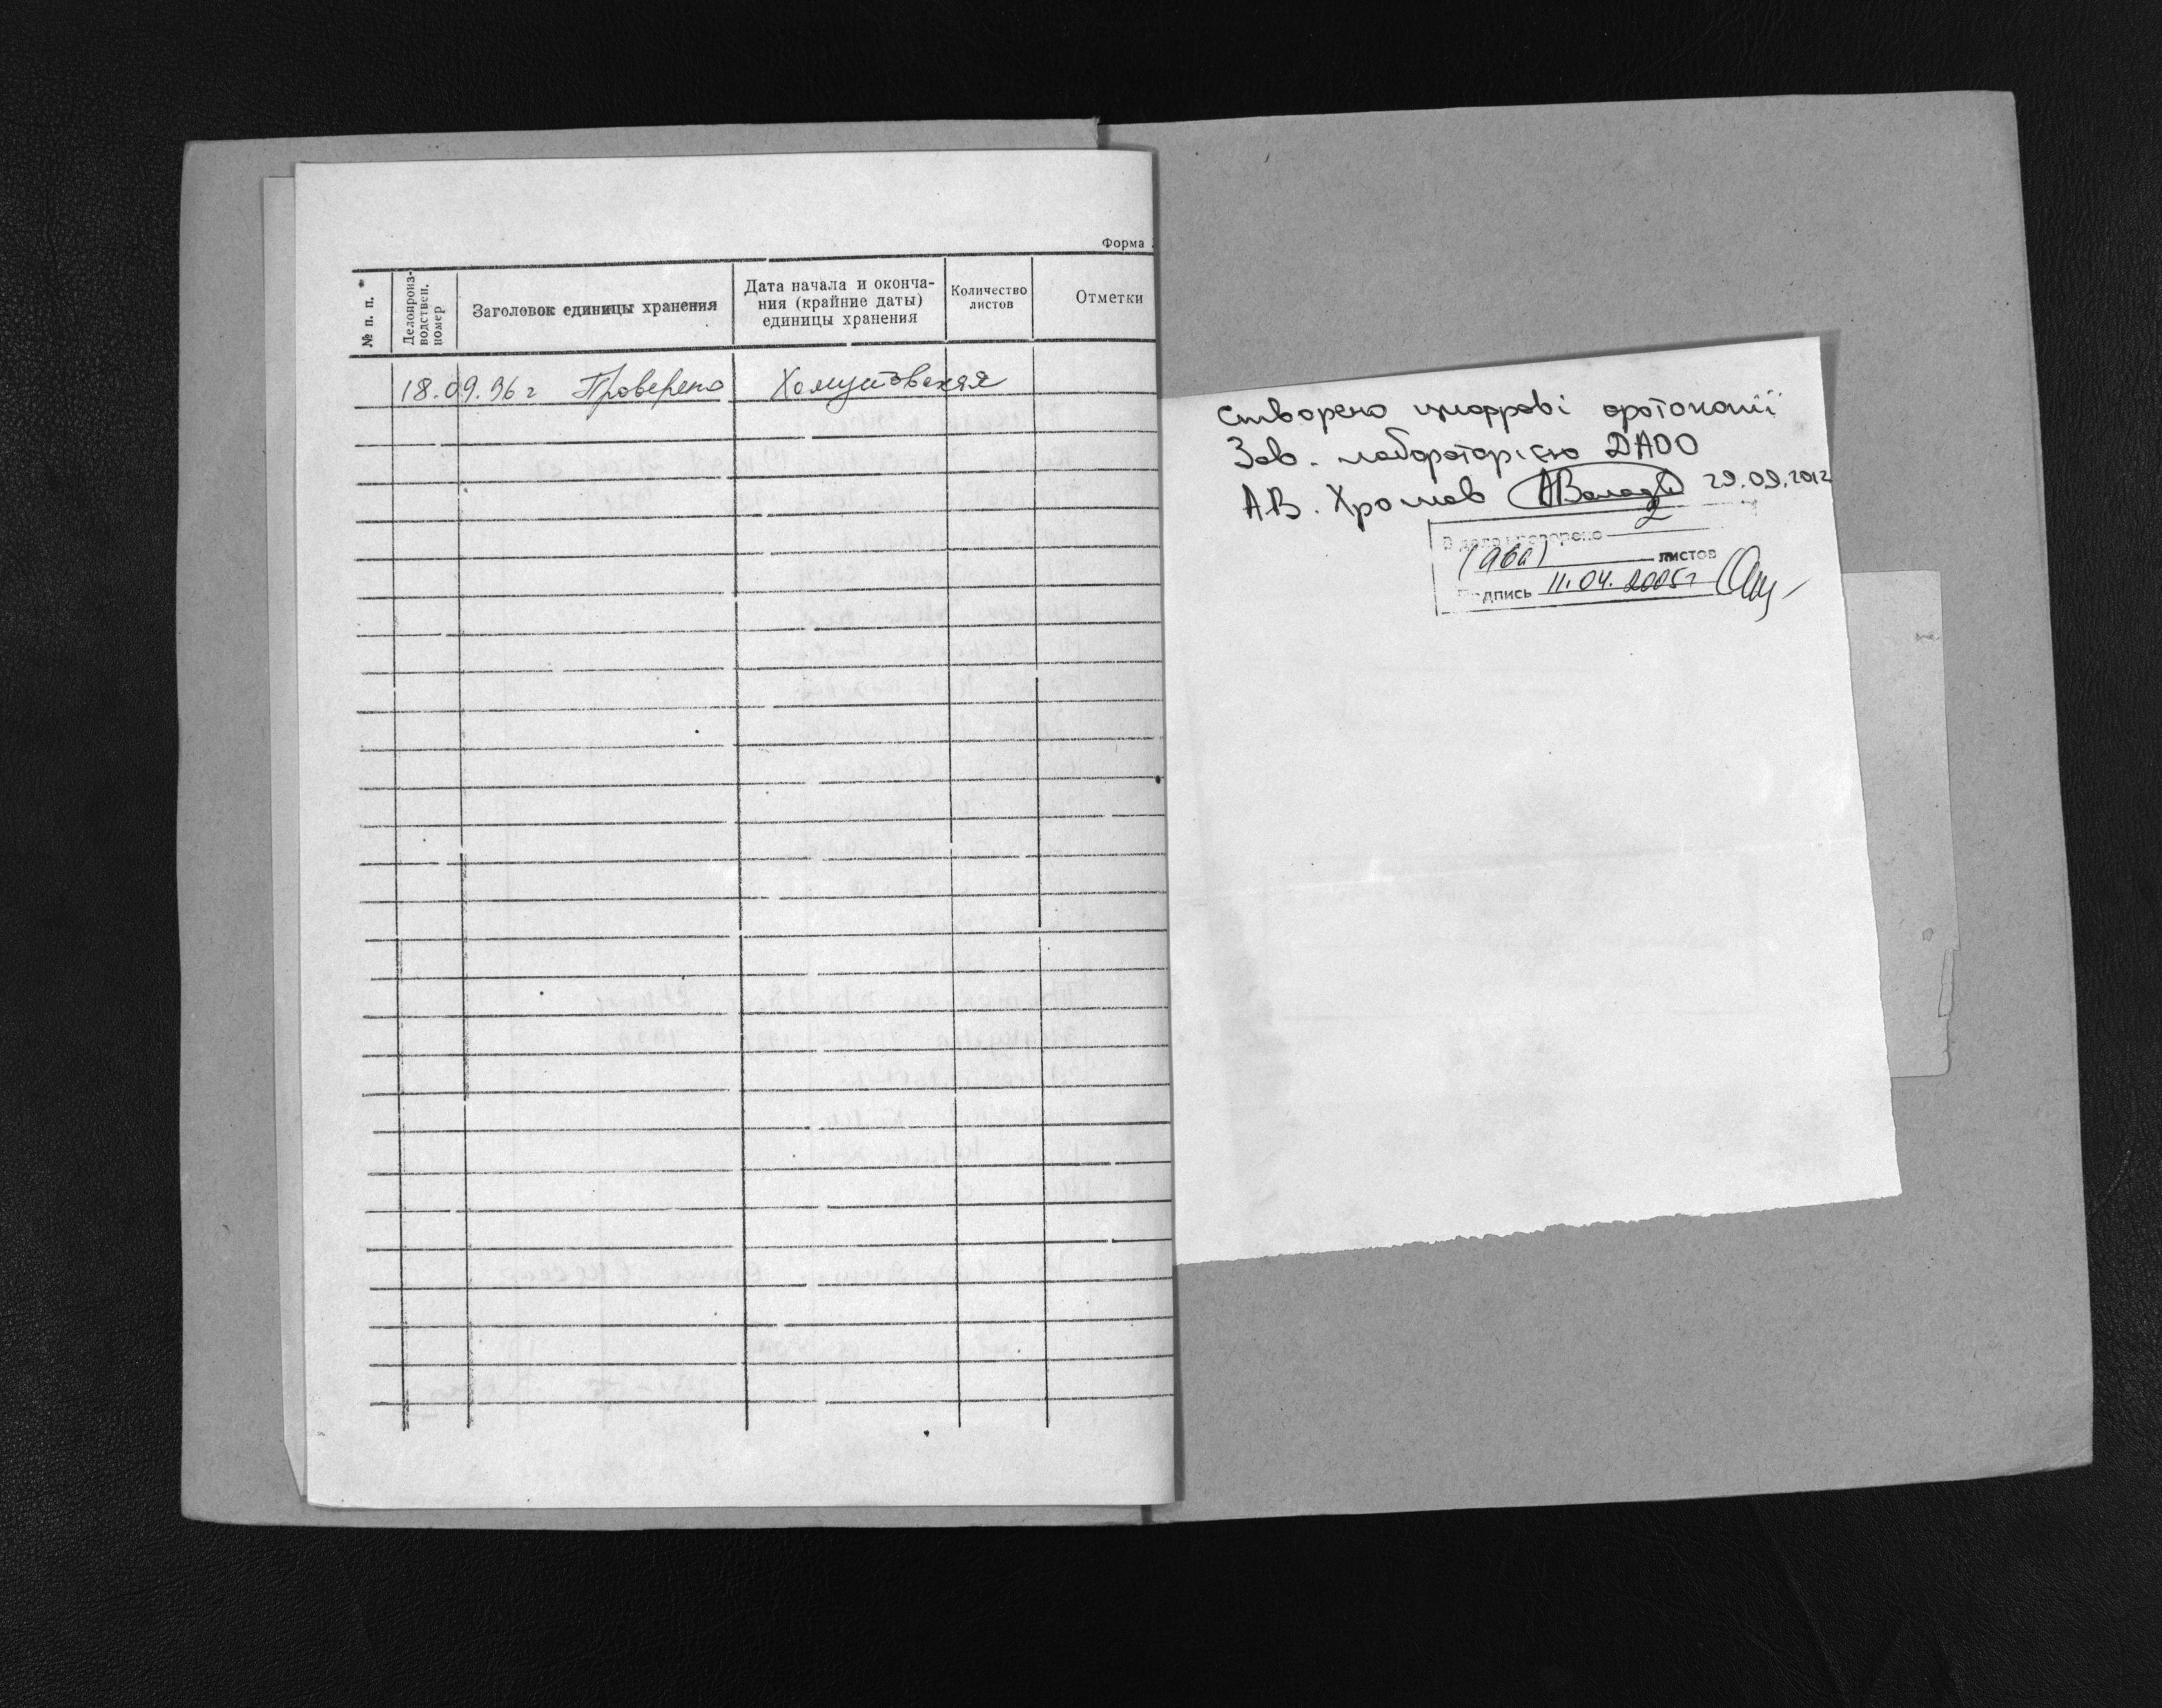 Форма
№ п. п.
Делопроиз-
водствен.
номер
Заголовок единицы хранения
Дата начала и оконча-
ния (крайние даты)
единицы хранения
Количество
листов
Отметки
18.09.96 г Проверено Хомутовская
Створено цифрові фотокопії
Зав. лабораторією ДАОО
А.В. Хромов 29.09.2012
В деле прошнуровано 2
(два) листов
Подпись 11.04.2005г